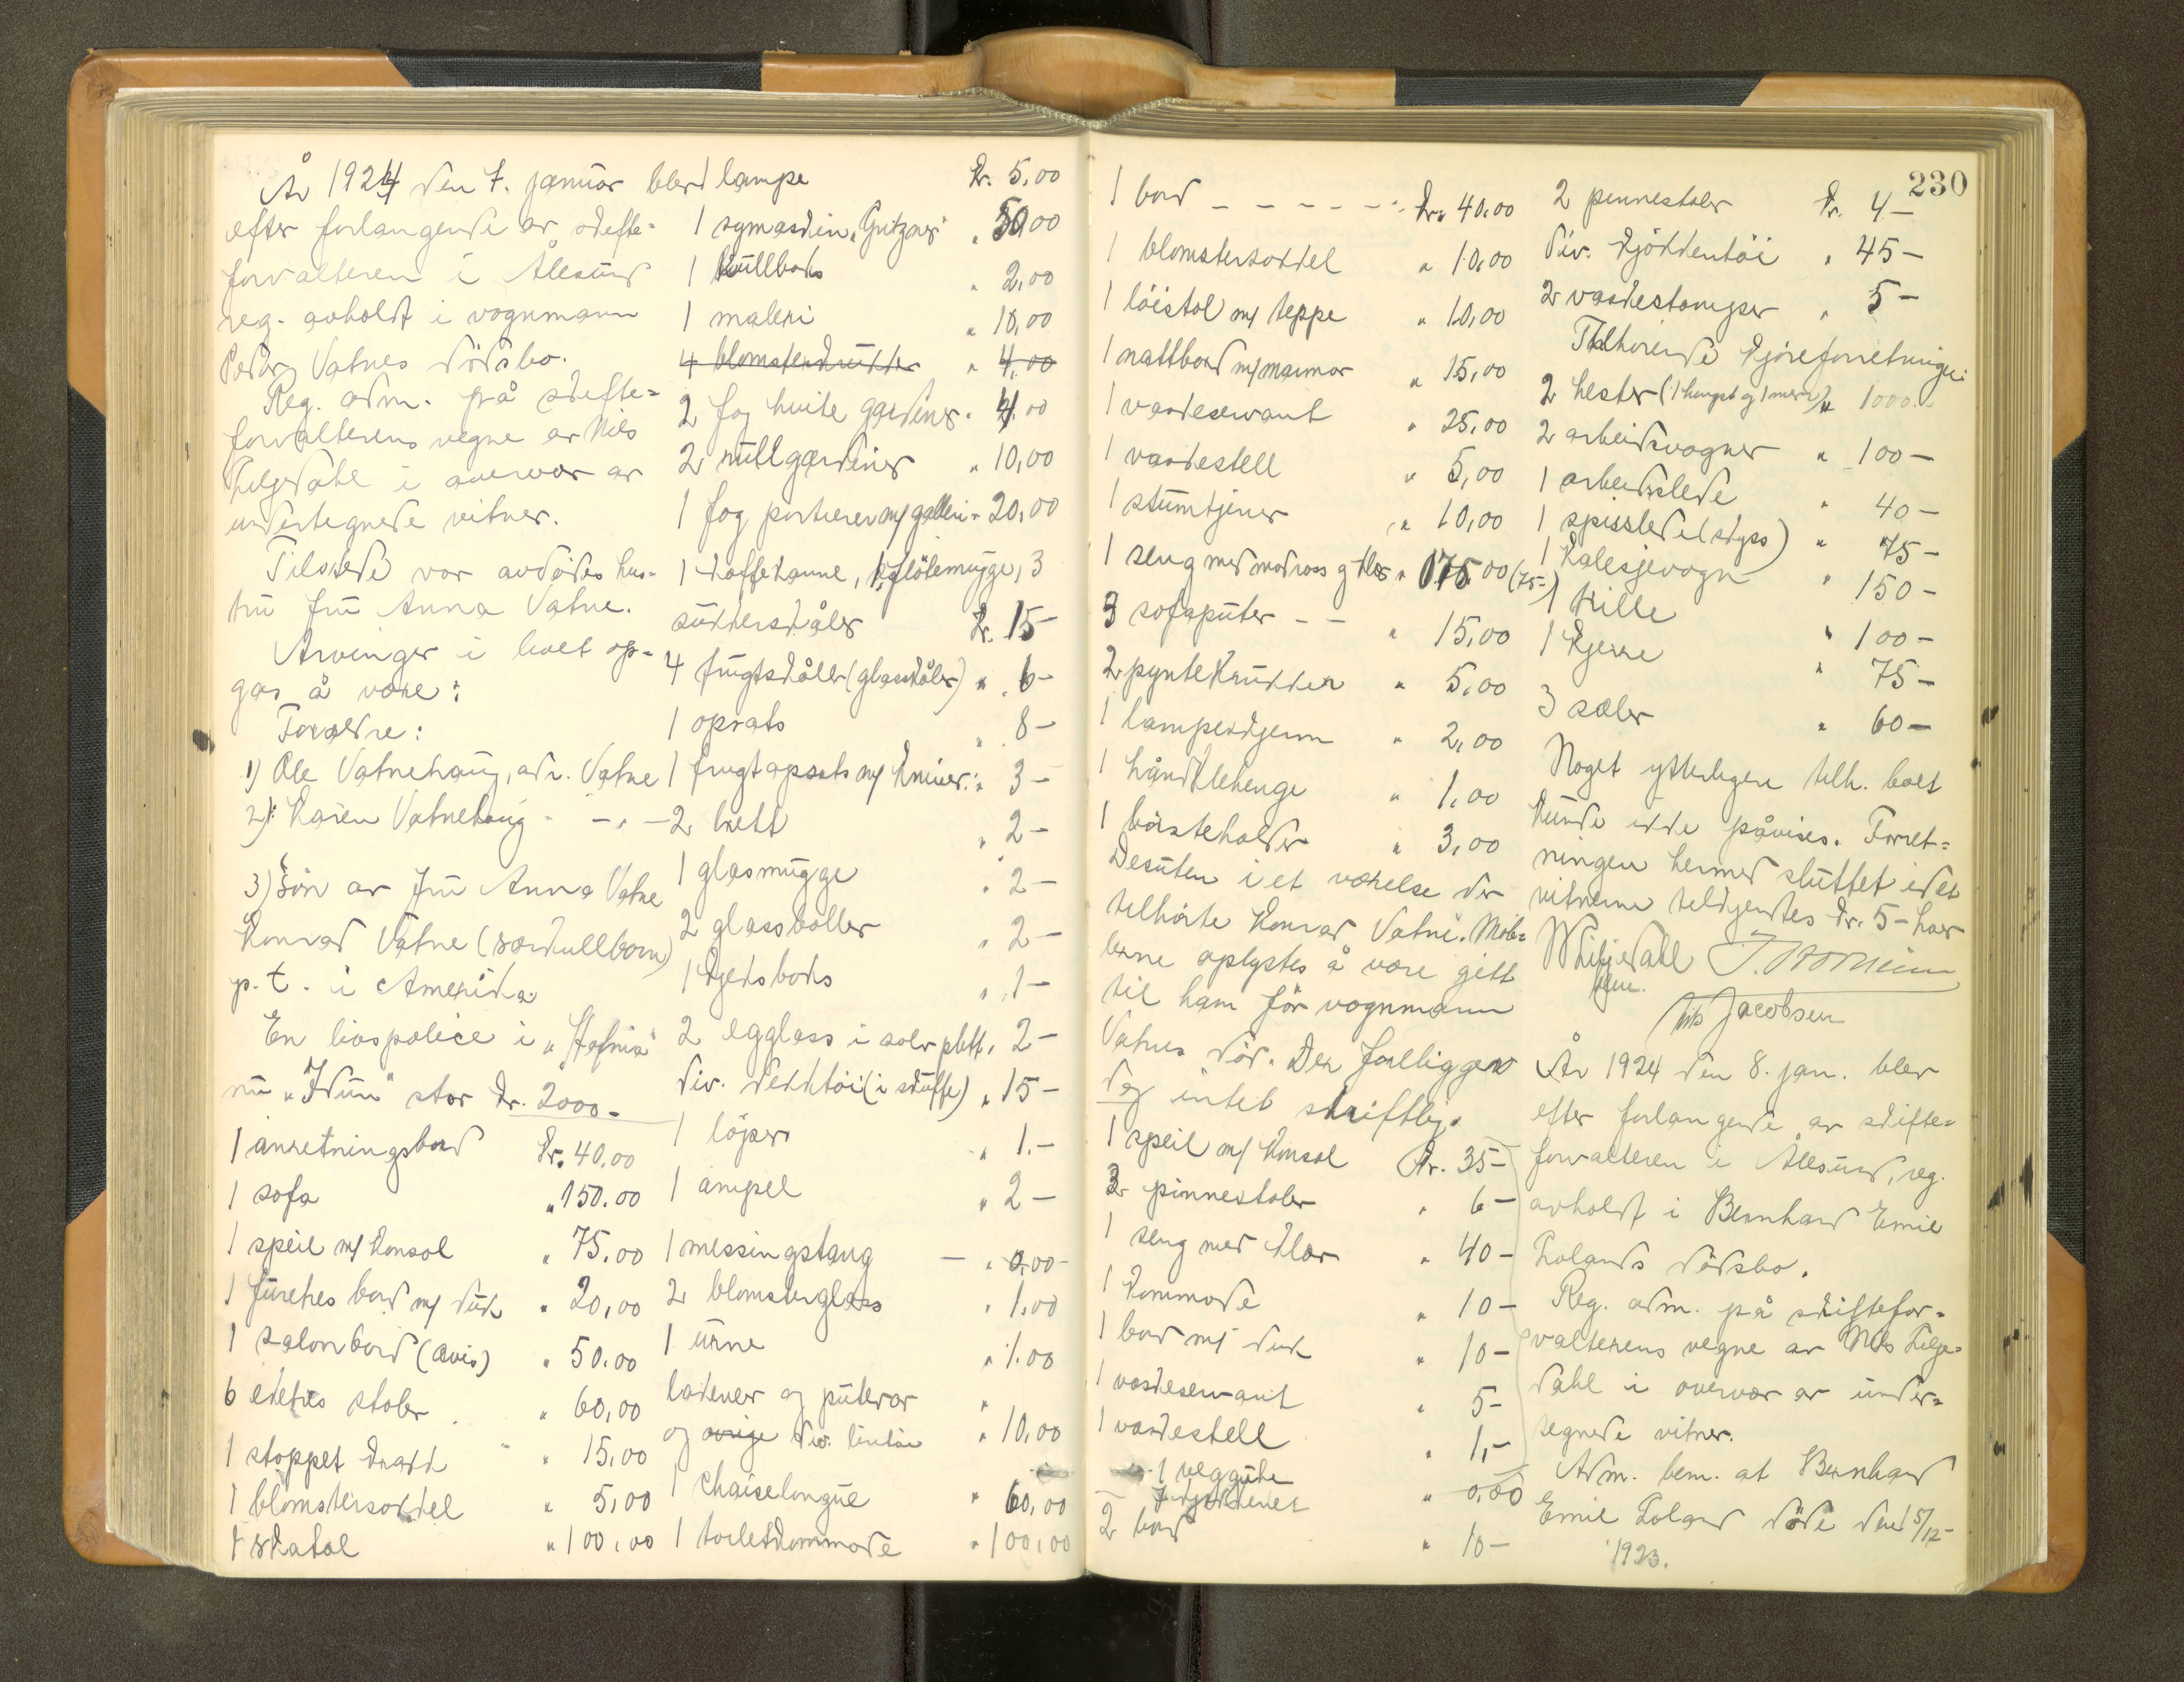 År 1924 den 7. januar blev
efter forlangende av skifte-
forvalteren i Ålesund
reg. avholdt i vognmann
Peder Vatnes dödsbo.
Reg. adm. på skifte-
forvalterens vegne av Nils
Liljedahl i overvær av
undertegnede vitner.
Tilstede var avdödes hus-
tru fru Anna Vatne.
Arvinger i boet op-
gas å være:
Forældre:
1) Ole Vatnehaug, adr. Vatne
2) Karen Vatnehaug - " -
3) Sön av fru Anna Vatne
Konrad Vatne (særkullbarn)
p.t. i Amerika
En livspolice i "Hafnia"
nu "Idun" stor kr. 2000-
1 anretningsbord kr. 40.00
1 sofa " 150.00
1 speil m/ konsol " 75.00
1 furetres bord m/ duk " 20,00
1 salonbord (avis) " 50.00
6 eketres stoler " 60,00
1 stoppet krakk " 15,00
1 blomstersokkel " 5,00
1 skatol " 100,00
1 lampe kr. 5,00
1 symaskin "Gritzner" " 50,00
1 kullboks " 2,00
1 maleri " 10,00
4 blomsterkrukker " 4,00
2 fag hvite gardiner " 4,00
2 rullgardiner " 10,00
1 fag portierer m/ galleri " 20,00
1 kaffekanne, 1 flötemugge, 3
sukkerskåler kr. 15-
4 frugtskåler (glasskåler) " 6-
1 opsats " 8-
1 frugtopsats m/ kniver " 3-
2 brett " 2-
1 glasmugge " 2-
2 glassboller " 2-
1 kjeksboks " 1-
2 egglass i sölvplett " 2-
div. dekktöi (i skuffe) " 15-
1 löper " 1.-
1 ampel " 2-
1 messingstang - " 0,00-
2 blomsterglass " 1.00
1 urne " 1.00
lakener og putevar "
og övrige div. lintöi " 10,00
1 chaiselongue " 60,00
1 toiletkommode " 100,00
230
1 bord - - - - - - kr. 40.00
1 blomstersokkel " 10,00
1 löistol m/ teppe " 10,00
1 nattbord m/ marmor " 15,00
1 vaskeservant " 25,00
1 vaskestell " 5,00
1 stumtjener " 10,00
1 seng med madrass og klær " 175,00 (75-)
3 sofaputer - - " 15,00
2 pyntekrukker " 5,00
1 lampeskjerm " 2,00
1 håndklehenge " 1,00
1 börsteholder " 3,00
Desuten i et værelse der
tilhörte Konrad Vatne. Möb-
lerne oplystes å være gitt
til ham för vognmann
Vatnes död. Der foreligger
dog intet skriftlig.
1 speil m/ konsol kr. 35-
3 pinnestoler " 6-
1 seng med klær " 40-
1 kommode " 10-
1 bord m/ duk " 10-
1 vaskeservant " 5-
1 vaskestell " 1,-
1 veggure
I kjökkenet " 0,00
2 bord " 10-
2 pinnestoler kr. 4-
div. kjökkentöi " 45-
2 vaskestamper " 5-
Tilhörende kjöreforretningen:
2 hester (1 hingst og 1 merr) " 1000.-
2 arbeidsvogner " 100-
1 arbeidsslede " 40-
1 spisslede (skyss) " 75-
1 kalesjevogn " 150-
1 trille " 100-
1 kjerre " 75-
3 sæler " 60-
Noget ytterligere tilh. boet
kunde ikke påvises. Forret-
ningen hermed sluttet idet
vitnerne tilkjendtes kr. 5- hver
NLiljedahl
Nils Jacobsen
År 1924 den 8. jan. blev
efter forlangende av skifte-
forvalteren i Ålesund, reg.
avholdt i Bernhard Emil
Lolands dödsbo.
Reg. adm. på skiftefor-
valterens vegne av Nils Lilje-
dahl i overvær av under-
tegnede vitner.
Adm. bem. at Bernhard
Emil Loland döde den 15/12-
1923.